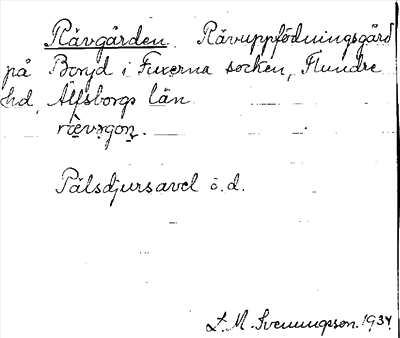 Rävgården. Rävuppfödningsgård
på Boryd i Fuxerna socken, Flundre
hd, Älfsborgs län
Pälsdjursavel o.d.
L. M. Svenungsson. 1934